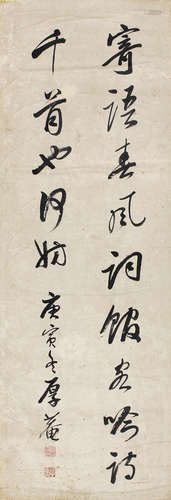 寄語春風詞館客吟詩
千首也何妨 庚寅冬厚菴